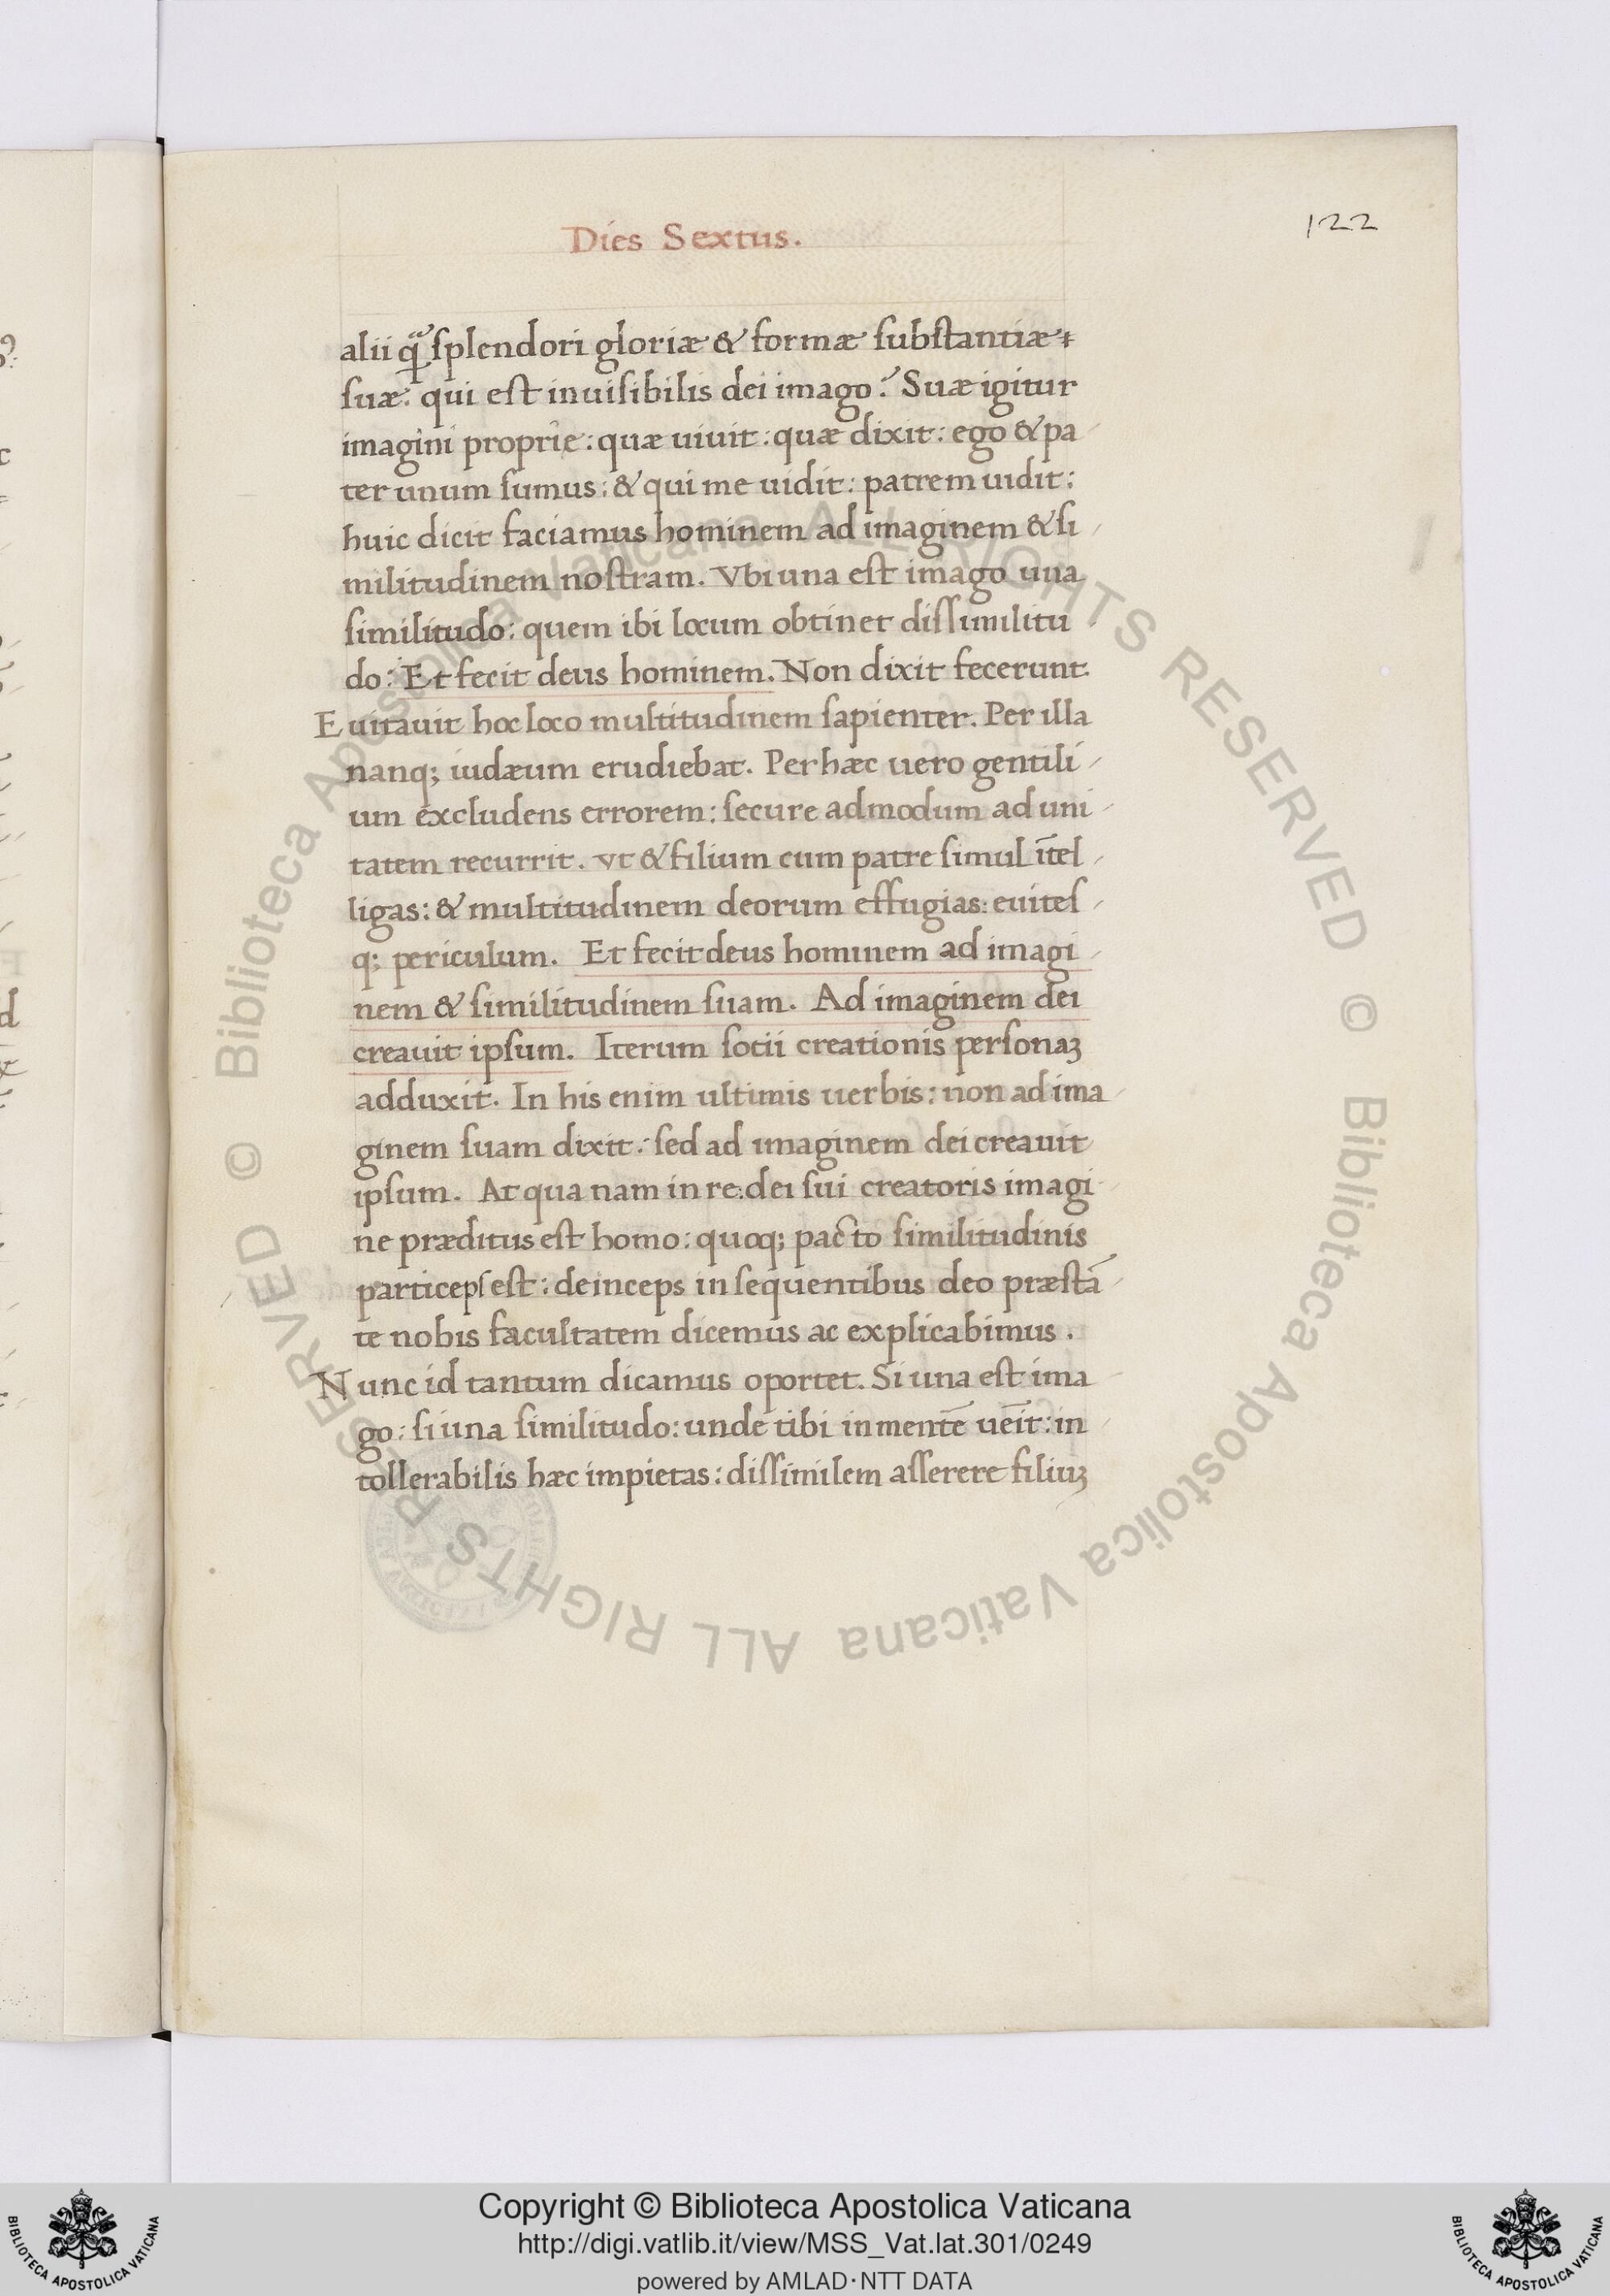 Dies Sextus.
122
alii qᷓ splendori gloriæ & formæ substantiæ
suæ: qui est inuisibilis dei imago? Suæ igitur
imagini proprie: quæ uiuit: quæ dixit: ego & pa
ter unum sumus: & qui me uidit: patrem uidit:
huic dicit faciamus hominem ad imaginem & si
militudinem nostram. Vbi una est imago una
similitudo: quem ibi locum obtinet dissimilitu
do: Et fecit deus hominem. Non dixit fecerunt.
Euitauit hoc loco multitudinem sapienter. Per illa
nanq; iudæum erudiebat. Per hæc uero gentili
um excludens errorem: secure admodum ad uni
tatem recurrit. vt & filium cum patre simul ītel
ligas: & multitudinem deorum effugias: euites
q; periculum. Et fecit deus hominem ad imagi
nem & similitudinem suam. Ad imaginem dei
creauit ipsum. Iterum sotii creationis personaꝫ
adduxit. In his enim ultimis uerbis: non ad ima
ginem suam dixit: sed ad imaginem dei creauit
ipsum. At qua nam in re: dei sui creatoris imagi
ne præditus est homo: quoq; pacto similitudinis
particeps est: deinceps in sequentibus deo præstā
te nobis facultatem dicemus ac explicabimus.
Nunc id tantum dicamus oportet. Si una est ima
go: si una similitudo: unde tibi in mentē ueīt: in
tollerabilis hæc impietas: dissimilem asserere filiuꝫ
© Biblioteca Apostolica Vaticana ALL RIGHTS RESERVED
© Biblioteca Apostolica Vaticana ALL RIGHTS RESERVED
Copyright © Biblioteca Apostolica Vaticana
http://digi.vatlib.it/view/MSS_Vat.lat.301/0249
powered by AMLAD·NTT DATA
BIBLIOTECA APOSTOLICA VATICANA
BIBLIOTECA APOSTOLICA VATICANA